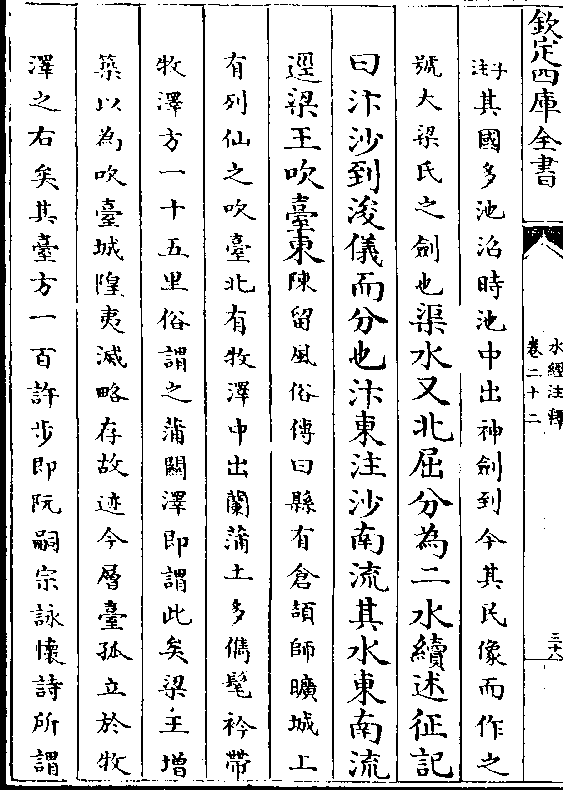 欽定四庫全書
水經注釋
卷二十二
三十八
注于其國多池沼時池中出神劍到今其民像而作之
號大梁氏之劍也渠水又北屈分為二水續述征記
曰汴沙到浚儀而分也汴東注沙南流其水東南流
逕梁王吹臺東陳留風俗傳曰縣有倉頡師曠城上
有列仙之吹臺北有牧澤中出蘭蒲土多儁髦衿帶
牧澤方一十五里俗謂之蒲關澤即謂此矣梁王增
築以為吹臺城隍夷滅略存故迹今層臺孤立於牧
澤之右矣其臺方一百許步即阮嗣宗詠懷詩所謂